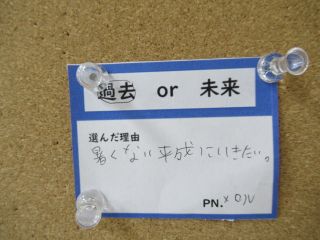 過去 or 未来
選んだ理由
暑くない平成にいきたい。
PN.